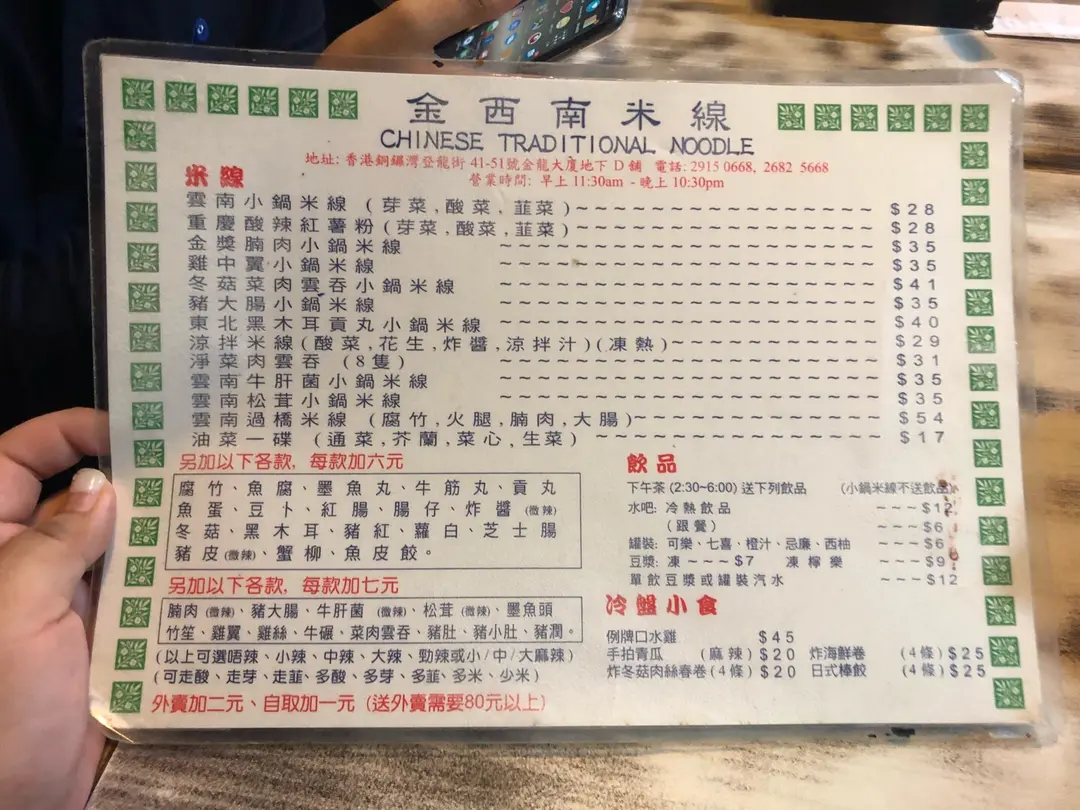 金西南米線
CHINESE TRADITIONAL NOODLE
地址: 香港銅鑼灣登龍街 41-51號金龍大廈地下 D 舖 電話: 2915 0668, 2682 5668
營業時間: 早上 11:30am - 晚上 10:30pm
米線
雲南小鍋米線 (芽菜,酸菜,韮菜)~~~~~~~~~~~~~~~~ $28
重慶酸辣紅薯粉 (芽菜,酸菜,韮菜)~~~~~~~~~~~~~~~~ $28
金獎腩肉小鍋米線 ~~~~~~~~~~~~~~~~~~~~ $35
雞中翼小鍋米線 ~~~~~~~~~~~~~~~~~~~~ $35
冬菇菜肉雲吞小鍋米線 ~~~~~~~~~~~~~~~~~~~~ $41
豬大腸小鍋米線 ~~~~~~~~~~~~~~~~~~~~ $35
東北黑木耳貢丸小鍋米線 ~~~~~~~~~~~~~~~~~~~~ $40
涼拌米線(酸菜,花生,炸醬,涼拌汁)(凍熱)~~~~~~~~~~~ $29
淨菜肉雲吞 (8隻) ~~~~~~~~~~~~~~~~~~~~ $31
雲南牛肝菌小鍋米線 ~~~~~~~~~~~~~~~~~~~~ $35
雲南松茸小鍋米線 ~~~~~~~~~~~~~~~~~~~~ $35
雲南過橋米線 (腐竹,火腿,腩肉,大腸)~~~~~~~~~~~~~ $54
油菜一碟 (通菜,芥蘭,菜心,生菜) ~~~~~~~~~~~~~~~ $17
另加以下各款, 每款加六元
腐竹、魚腐、墨魚丸、牛筋丸、貢丸
魚蛋、豆卜、紅腸、腸仔、炸醬 (微辣)
冬菇、黑木耳、豬紅、蘿白、芝士腸
豬皮(微辣)、蟹柳、魚皮餃。
另加以下各款, 每款加七元
腩肉 (微辣)、豬大腸、牛肝菌 (微辣)、松茸 (微辣)、墨魚頭
竹笙、雞翼、雞絲、牛𥔵、菜肉雲吞、豬肚、豬小肚、豬潤。
(以上可選唔辣、小辣、中辣、大辣、勁辣或小/中/大麻辣)
(可走酸、走芽、走韮、多酸、多芽、多韮、多米、少米)
外賣加二元、自取加一元 (送外賣需要80元以上)
飲品
下午茶 (2:30~6:00) 送下列飲品 (小鍋米線不送飲品)
水吧: 冷熱飲品 ~~~$12
(跟餐) ~~~$6
罐裝: 可樂、七喜、橙汁、忌廉、西柚 ~~~$6
豆漿: 凍~~~$7 凍檸樂 ~~~$9
單飲豆漿或罐裝汽水 ~~~$12
冷盤小食
例牌口水雞 $45
手拍青瓜 (麻辣) $20 炸海鮮卷 (4條) $25
炸冬菇肉絲春卷 (4條) $20 日式棒餃 (4條) $25